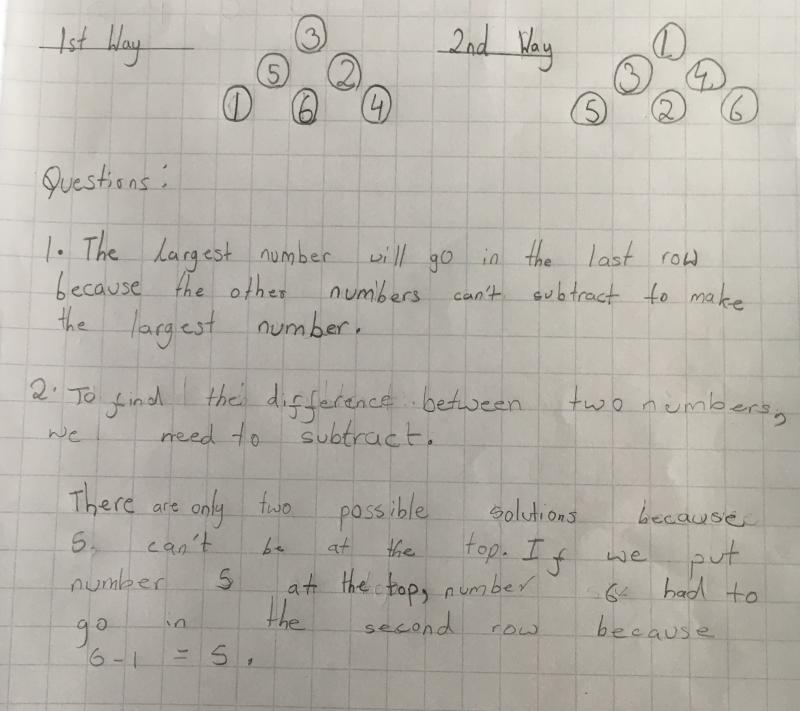 1st Way 2nd Way
3 1
5 2 3 4
1 6 4 5 2 6
Questions:
1. The largest number will go in the last row
because the other numbers can't subtract to make
the largest number.
2. To find the difference between two numbers,
we need to subtract.
There are only two possible solutions because
5 can't be at the top. If we put
number 5 at the top, number 6 had to
go in the second row because
6-1 = 5.